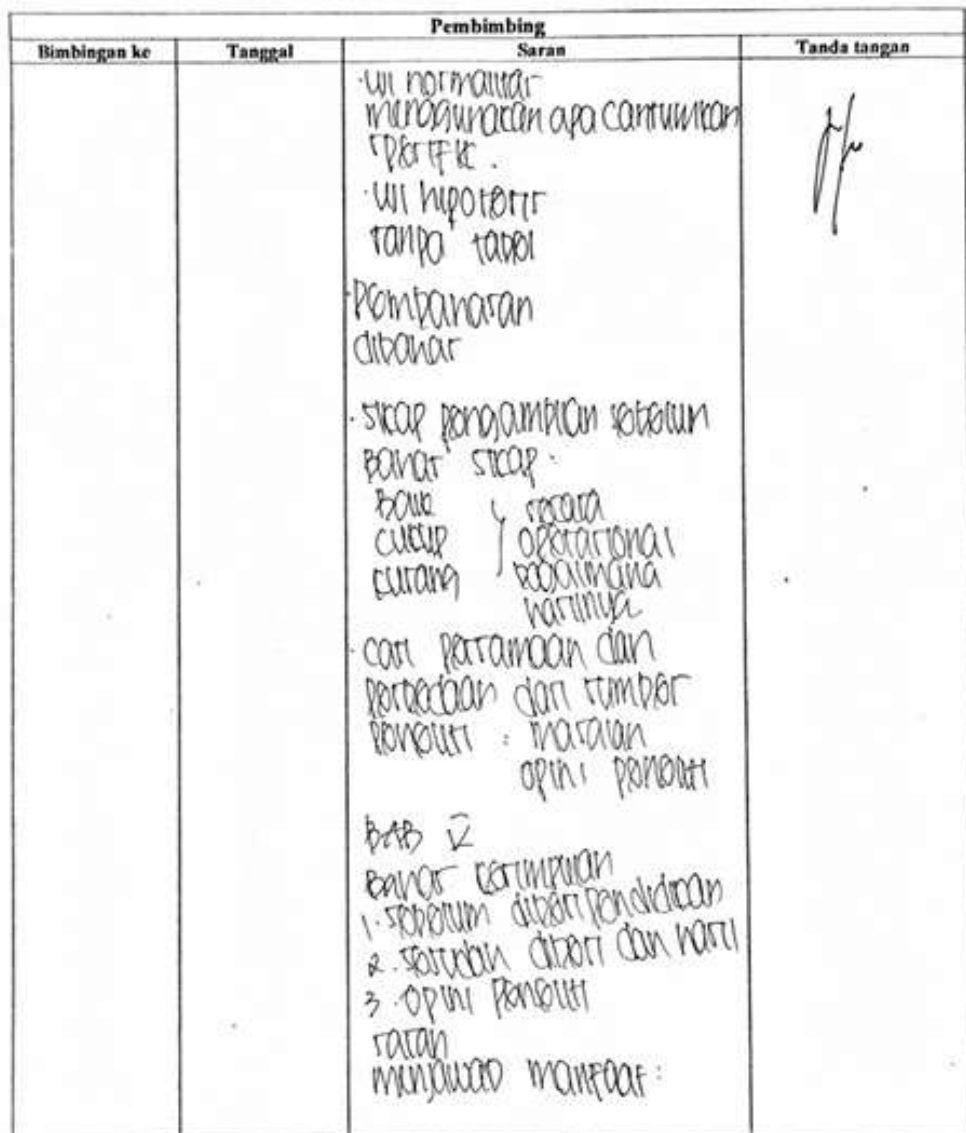 Pembimbing
Bimbingan ke Tanggal Saran Tanda tangan
· Uji normalitas
menggunakan apa cantumkan
spesifik.
· Uji hipotesis
tanpa tabel
· Pembahasan
dibahas
· Sikap pengambilan sebelum
Bahas sikap :
Baik
cukup
kurang
secara
operasional
bagaimana
hasilnya
· cari persamaan dan
perbedaan dari sumber
peneliti : masalah
opini peneliti
BAB V
Bahas kesimpulan
1. sebelum diberi pendidikan
2. sesudah diberi dan hasil
3. opini peneliti
saran
menjawab manfaat :